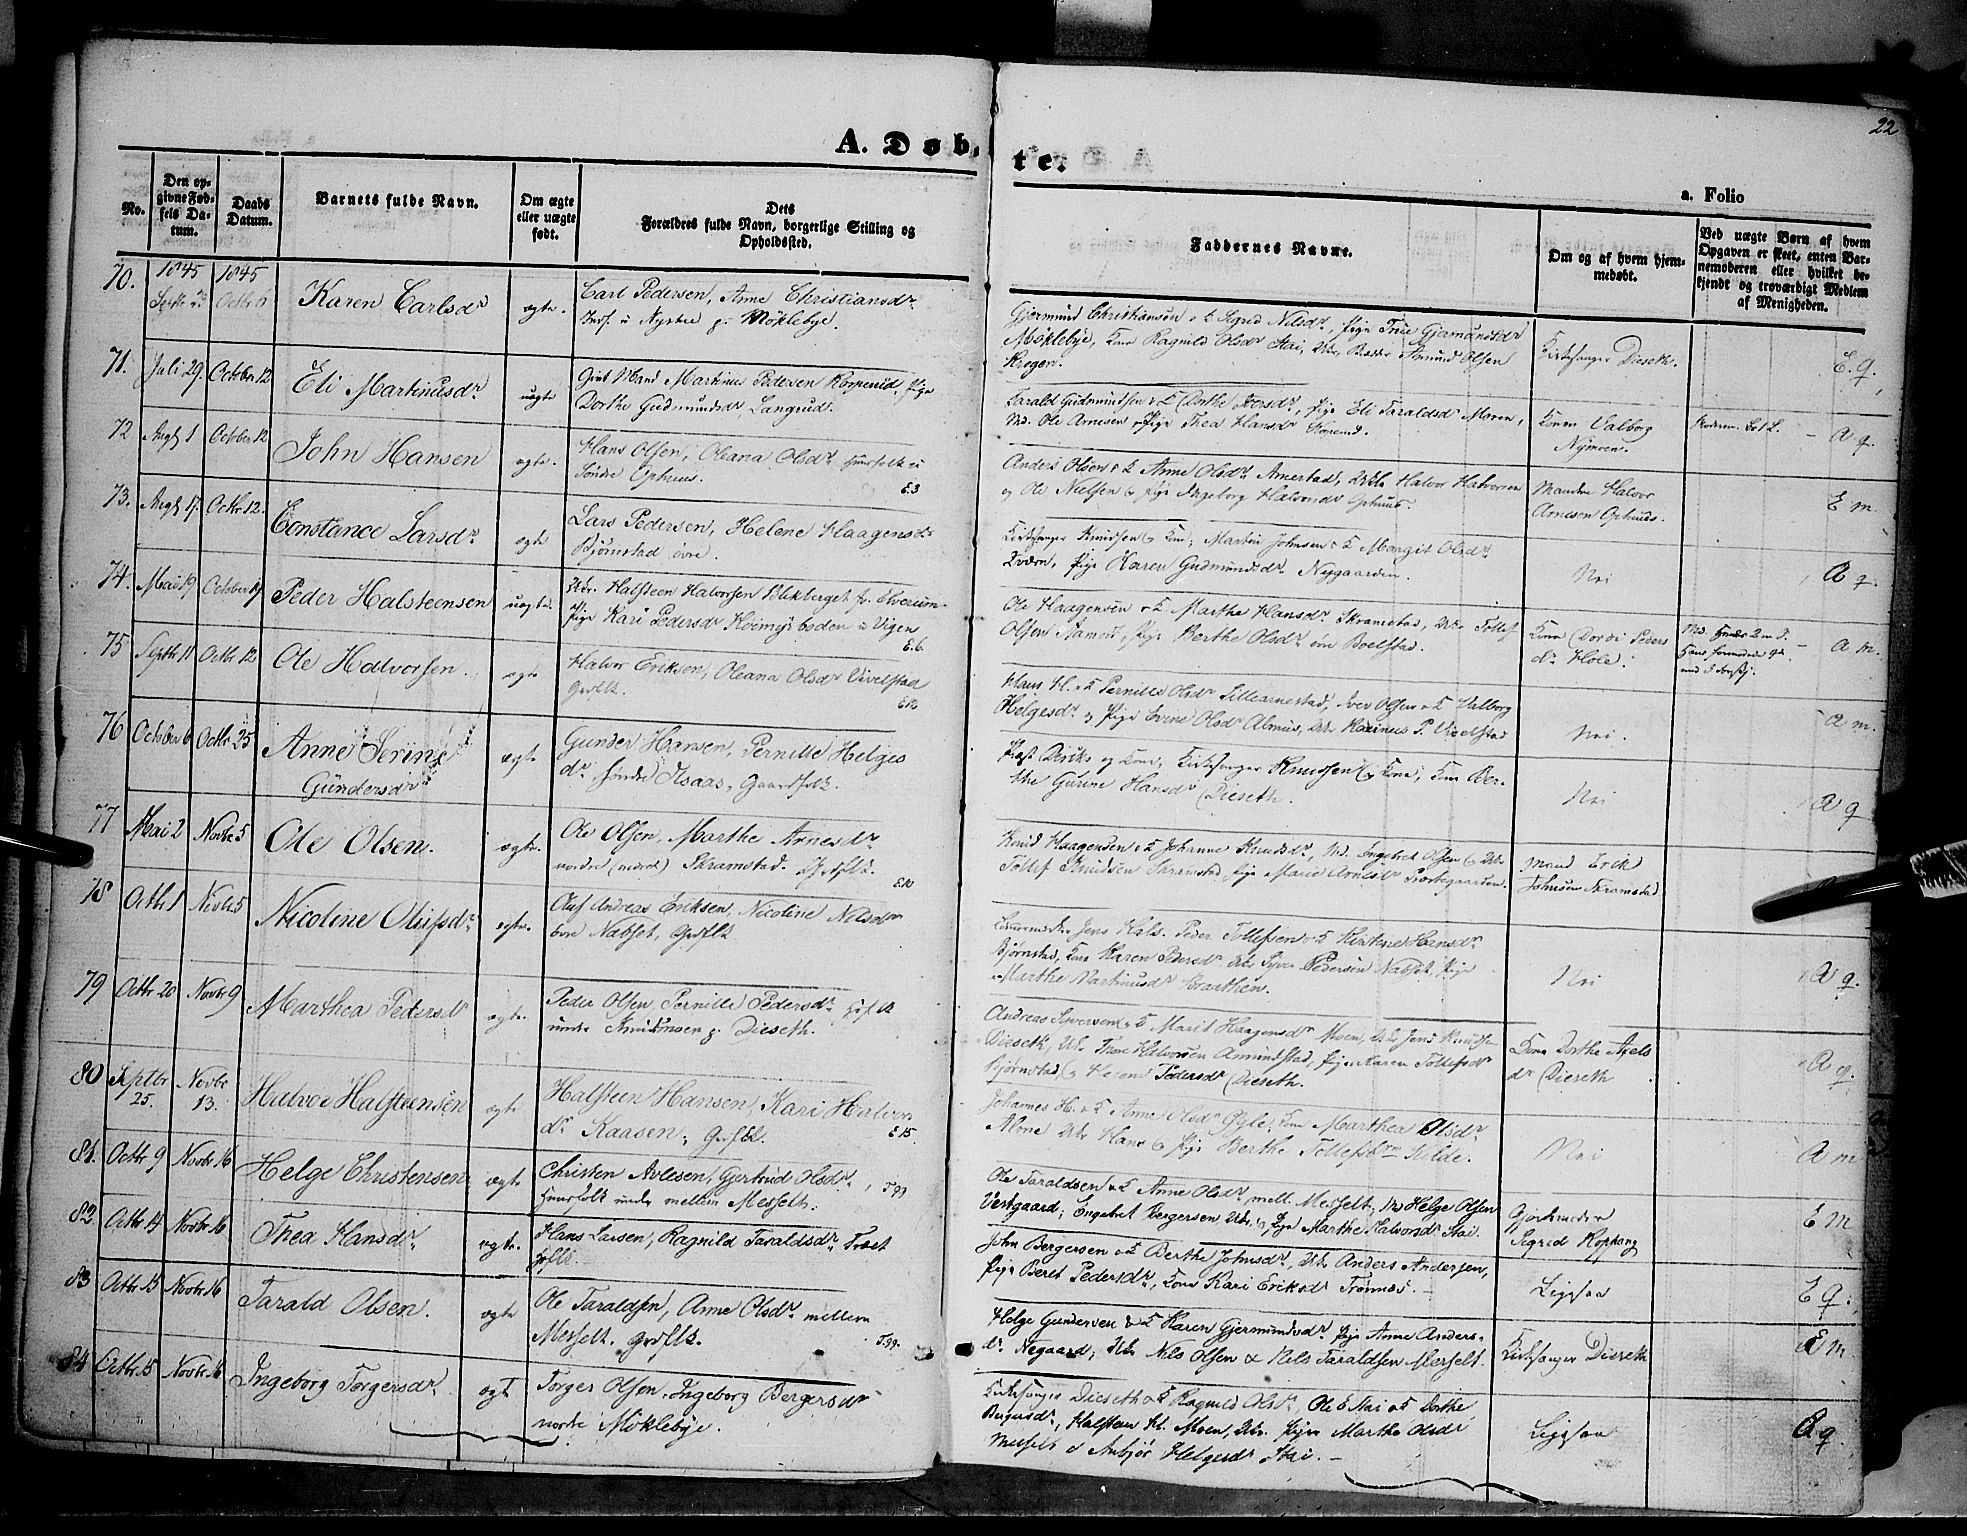 22
A. Døbte.
a. Folio
No.
Den opgivne Fødsels Datum.
Daabs Datum.
Barnets fulde Navn.
Om ægte eller uægte født.
Dets Forældres fulde Navn, borgerlige Stilling og Opholdssted.
Faddernes Navne.
Om og af hvem hjemmedøbt.
Ved uægte Børn af hvem Opgaven er skeet, enten Barnemoderen eller hvilket bekjendt og troværdigt Medlem af Menigheden.
70. 1845 Septbr 23 1845 Octbr 6 Karen Carlsdr ægte.
Carl Pedersen, Anne Christiansdr
Inds. u Nystue p. Møklebye.
Gjermund Christiansen o. K Sigrid Nilsdr, Pige Trine Gjermundsdr
Møklebye, Kone Ragnild Olsdr Stai, Amund Olsen
Krogen.
Kirkesanger Dieseth.
E. q.
71. Juli 29. October 12 Eli Martinusdr uægte
Gift Mand Martinus Pedersen Kopperud, Pige
Dorthe Gudmundsdr Langrud.
Tarald Gudmundsen o. K Dorthe Iversdr, Pige Eli Taraldsdr Moren,
Md. Ole Arnesen, Pige Thea Hansdr
Konen Valborg
Nymoen.
A q.
72 Augst 1 October 12 John Hansen ægte.
Hans Olsen, Oleana Olsdr Huusfolk u
Søndre Ophuus.
E.3
Anders Olsen o. K Anne Olsdr Arnestad, Uk. Halvor Halvorsen
og Ole Nielsen & Pige Ingeborg Halvorsdr Ophuus.
Manden Halvor
Arnesen Ophuus.
E m.
73. Augst 17. Octbr 12. Constance Larsdr ægte
Lars Pedersen, Helene Haagensdr
Bjørnstad øvre.
Kirkesanger Knudsen & Kone, Martin Johnsen o. K Margit Olsdr
Kværn, Pige Karen Gudmundsdr Nygaarden.
Nei
A q.
74. Mai 19 October 19 Peder Halsteensen uægte.
Uk. Halsteen Halvorsen Blikberget fr. Elverum
Pige Kari Pedersdr Høimyrboden u Vigen
E.6.
Ole Haagensen o. K Marthe Hansdr Skramstad, Uk. Tollef
Olsen, Pige Berthe Olsdr øvre Bolstad.
Kone Dordi Peders
dr Hole.
A m.
75 Septbr 11 Octbr 12 Ole Halvorsen. ægte
Halvor Eriksen, Oleana Olsdr Vivelstad
Grdflk.
Hans H. o. K Pernille Olsdr Lillearnestad, Iver Olsen o. K Valborg
Helgesdr & Pige Evine Olsdr Almuus, Uk. P. Vivelstad
Nei.
A m.
76 October 6 Octbr 25 Anne Serine
Gundersdr ægte
Gunder Hansen, Pernille Helges
dr søndre Aasaas, Gaardfolk.
Præst Deriks og Kone, Kirkesanger Knudsen & Kone, Kone Ber-
the Gurine Hansdr Dieseth.
Nei
A q
77 Mai 2 Novbr 5 Ole Olsen. ægte.
Ole Olsen, Marthe Arnesdr
nordre (nedre) Skramstad. Grdflk.
E.10
Knud Haagensen o. K Johanne Knudsdr, Md. Engebret Olsen & Uk.
Tollef Knudsen Skramstad, Pige Marie Arnesdr Præstegaarden.
Mand Erik
Johnsen Skramstad
78 Octbr 1 Novbr 5 Nicoline Olufsdr. ægte.
Oluf Andreas Eriksen, Nicoline Nilsdr
Nabset, Grdflk
Jens Hals. Peder Tollefsen o. K Kirstine Hansdr
Bjørnstad, Kone Karen Pedersdr Uk. Pedersen Nabset, Pige
Marthe Martinusdr Braathen.
Nei
A q.
79 Octbr 20 Novbr 9 Marthea Pedersdr ægte.
Peder Olsen, Pernille Pedersdr
under p. Dieseth.
Andreas Syversen o. K Marit Haagensdr Moen, Uk. Jens Knudsen
Dieseth, Uk. Thore Halvorsen Amundstad, Pige Karen Tollefsdr
Bjørnstad, & Helene Pedersdr Dieseth.
Kone Dorthe Axels
dr Dieseth
A q.
80 Septbr 25. Novbr 13. Halvor Halsteensen ægte
Halsteen Hansen, Kari Halvors
dr Kaasen, Grdflk.
E 15.
Johannes H. o. K Anne Olsdr Øgle, Kone Marthea Olsdr
Alme Uk. Hans & Pige Berthe Tollefsbrn Kilde.
Nei
A m
81. Octbr 9 Novbr 16 Helge Christensen ægte
Christen Arlesen, Gjertrud Olsdr.
Huusfolk under mellem Messelt.
T.99
Ole Taraldsen o. K Anne Olsdr mell. Messelt, Md. Helge Olsen
Vestgaard, Engebret Bergersen Uk. & Pige Marthe Halvorsdr Stai.
Gjordmoder
Sigrid Koppang
E m
82. Octbr 14 Novbr 16 Thea Hansdr ægte.
Hans Larsen, Ragnild Taraldsdr Træet
Grdflk.
John Bergersen o. K Berthe Johnsdr, Uk. Anders Andersen,
Pige Beret Pedersdr, Kone Kari Eriksdr Trønnes.
Ligesaa
E q.
83 Octbr 15 Novbr 16 Tarald Olsen. ægte
Ole Taraldsen, Anne Olsdr mellem
Messelt. Grdflk.
T.99.
Helge Gundersen o. K Karen Gjermundsdr Pige Anne Anders-
dr Negaard, Uk. Nils Olsen & Nils Taraldsen Messelt.
Kirkesanger Dieseth
E m
84 Octbr 15 Novbr 16 Ingeborg Torgersdr ægte
Torger Olsen, Ingeborg Bergersdr
nordre Møklebye.
Kirkesanger Dieseth o. K Ragnild Olsdr, Ole E Stai o. K Dorthe
Bergersdr, Halsteen H. Moen, Uk. Pige Marthe Olsdr
Messelt & Anbjør Helgesdr Stai.
Ligesaa
A q.